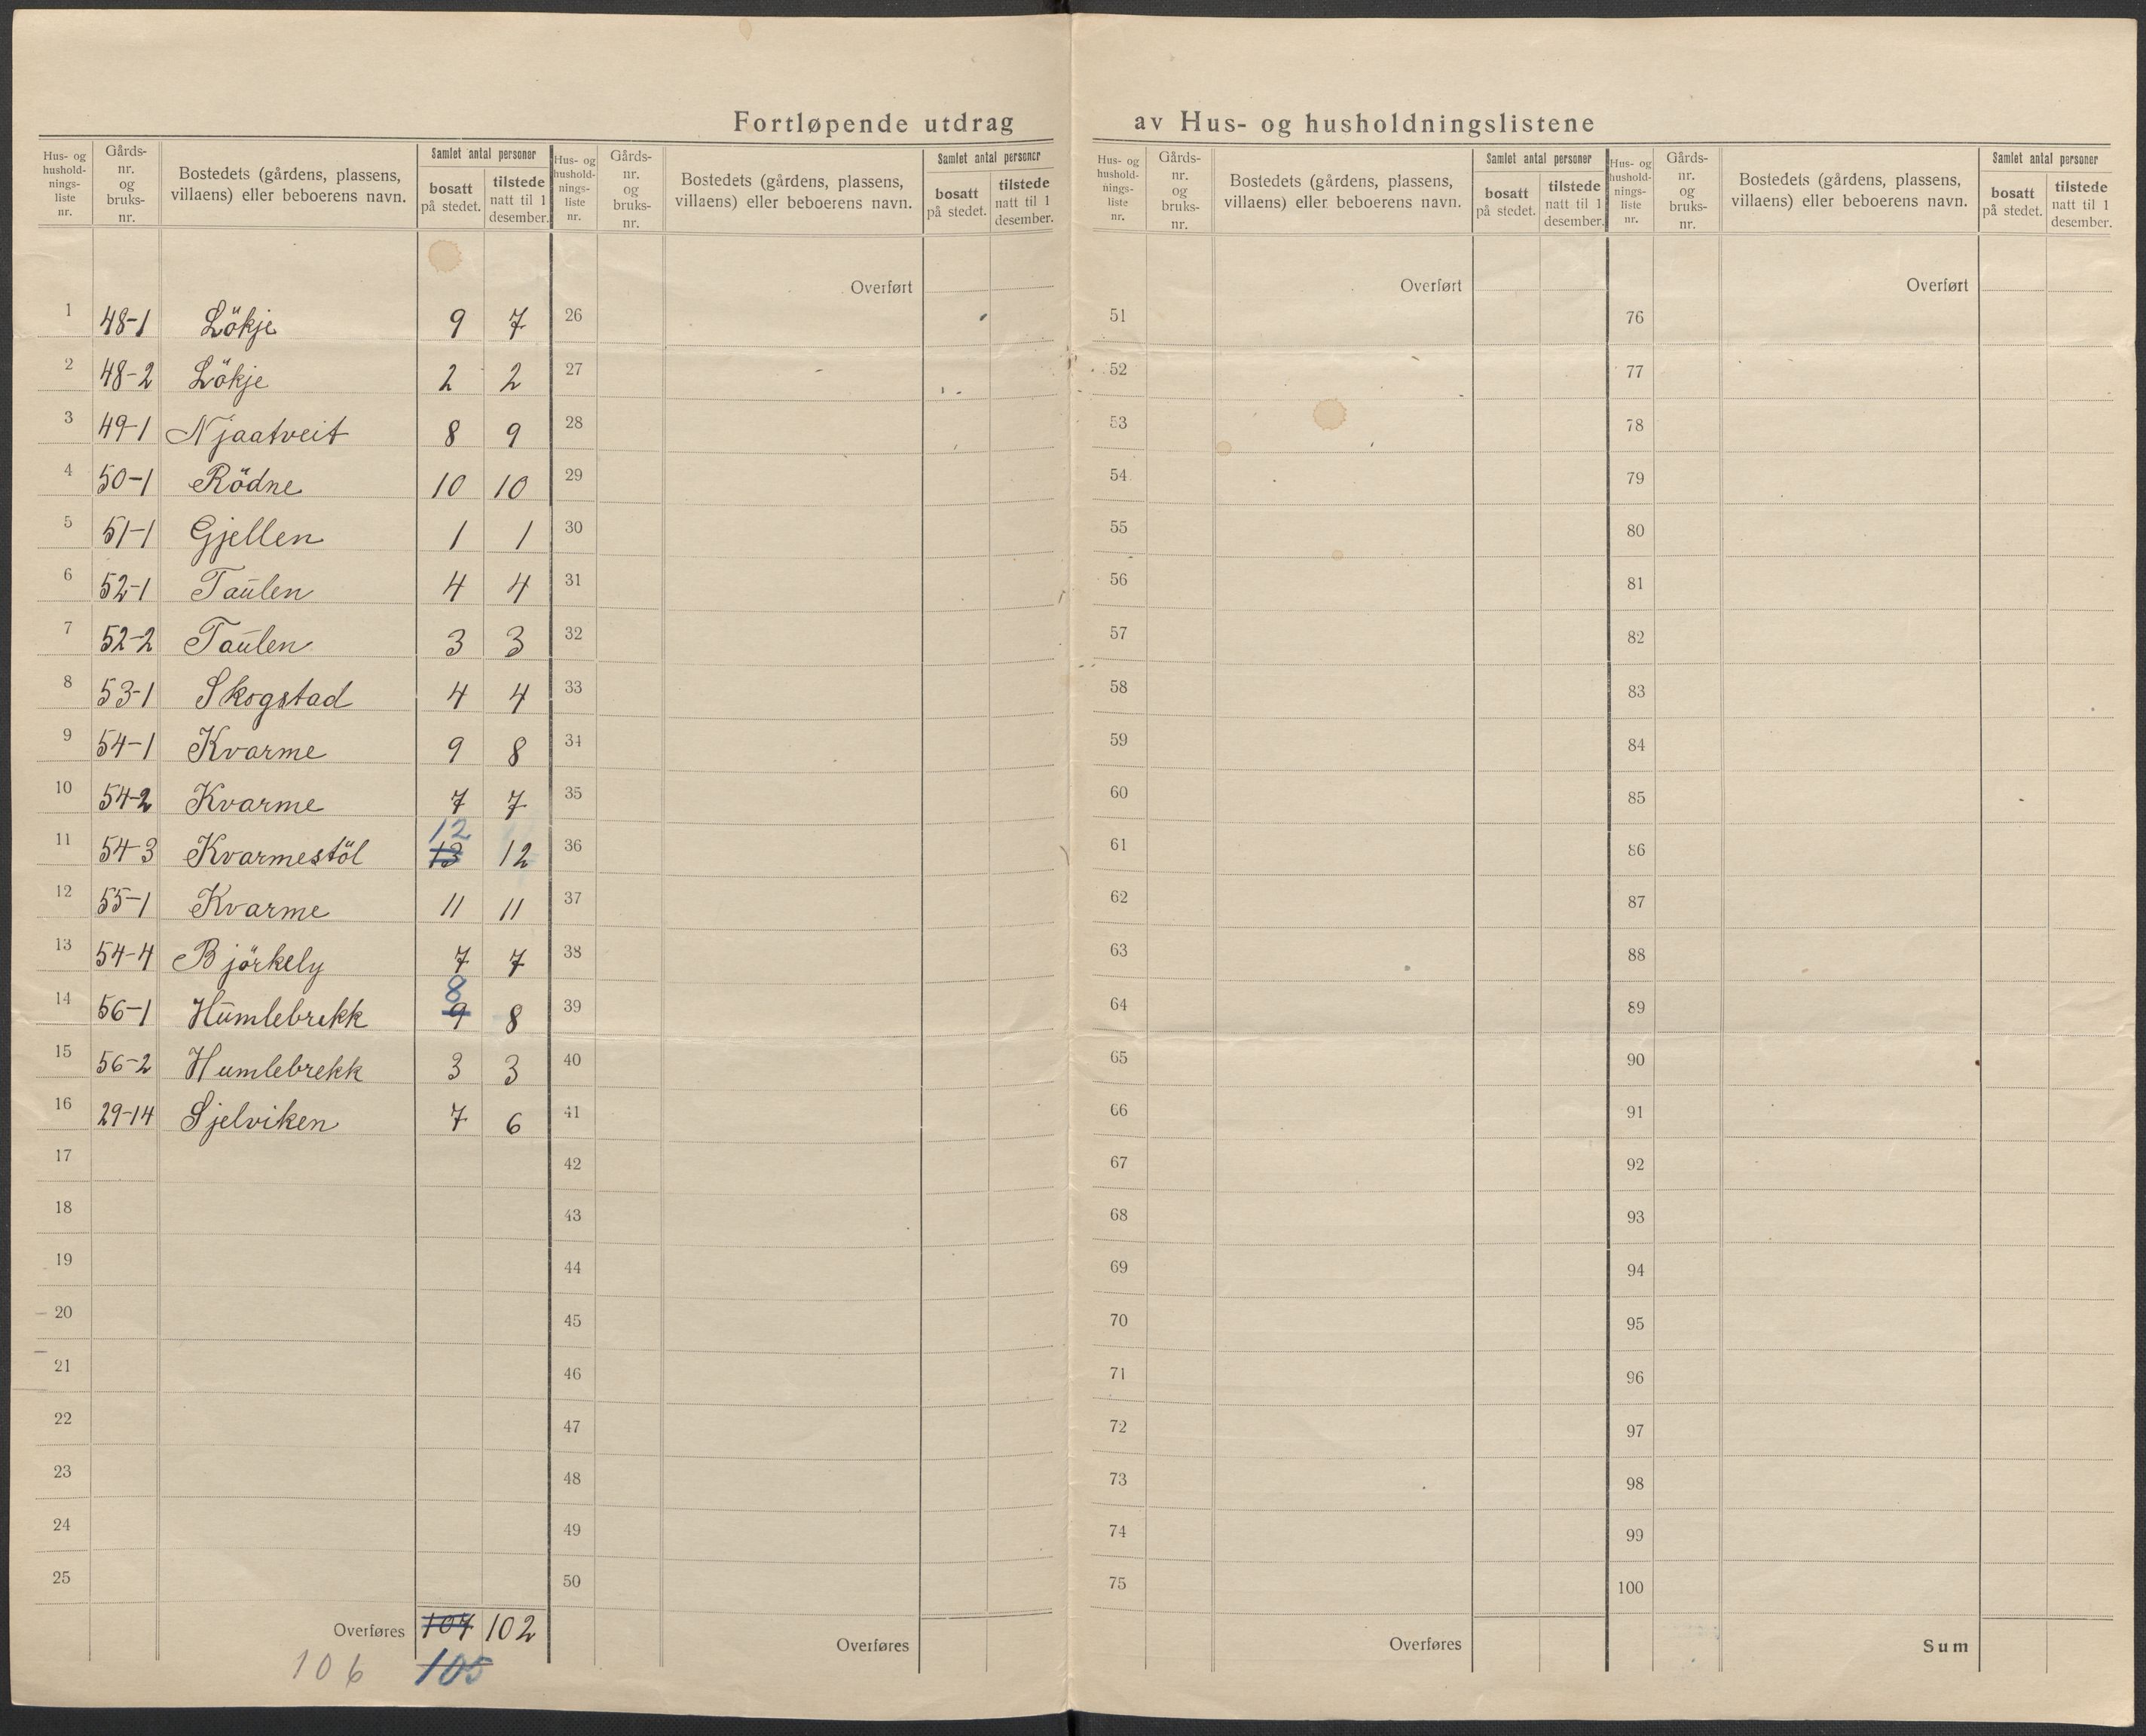 Fortløpende utdrag av Hus- og husholdningslistene
Hus- og hushold-nings-liste nr. Gårds-nr. og bruks-nr. Bostedets (gårdens, plassens, villaens) eller beboerens navn. Samlet antal personer bosatt på stedet. tilstede natt til 1 desember.
Hus- og hushold-nings-liste nr. Gårds-nr. og bruks-nr. Bostedets (gårdens, plassens, villaens) eller beboerens navn. Samlet antal personer bosatt på stedet. tilstede natt til 1 desember.
Hus- og hushold-nings-liste nr. Gårds-nr. og bruks-nr. Bostedets (gårdens, plassens, villaens) eller beboerens navn. Samlet antal personer bosatt på stedet. tilstede natt til 1 desember.
Hus- og hushold-nings-liste nr. Gårds-nr. og bruks-nr. Bostedets (gårdens, plassens, villaens) eller beboerens navn. Samlet antal personer bosatt på stedet. tilstede natt til 1 desember.
1 48-1 Lökje 9 7
2 48-2 Lökje 2 2
3 49-1 Njaatveit 8 9
4 50-1 Rödne 10 10
5 51-1 Gjellen 1 1
6 52-1 Taūlen 4 4
7 52-2 Taūlen 3 3
8 53-1 Skogstad 4 4
9 54-1 Kvarme 9 8
10 54-2 Kvarme 7 7
12
11 54-3 Kvarmestöl 13 12
12 55-1 Kvarme 11 11
13 54-4 Björkely 7 7
8
14 56-1 Hūmlebrekk 9 8
15 56-2 Humlebrekk 3 3
16 29-14 Sjelviken 7 6
17
18
19
20
21
22
23
24
25
Overføres 107 102
106 105
Overført
26
27
28
29
30
31
32
33
34
35
36
37
38
39
40
41
42
43
44
45
46
47
48
49
50
Overføres
Overført
51
52
53
54
55
56
57
58
59
60
61
62
63
64
65
66
67
68
69
70
71
72
73
74
75
Overføres
Overført
76
77
78
79
80
81
82
83
84
85
86
87
88
89
90
91
92
93
94
95
96
97
98
99
100
Sum